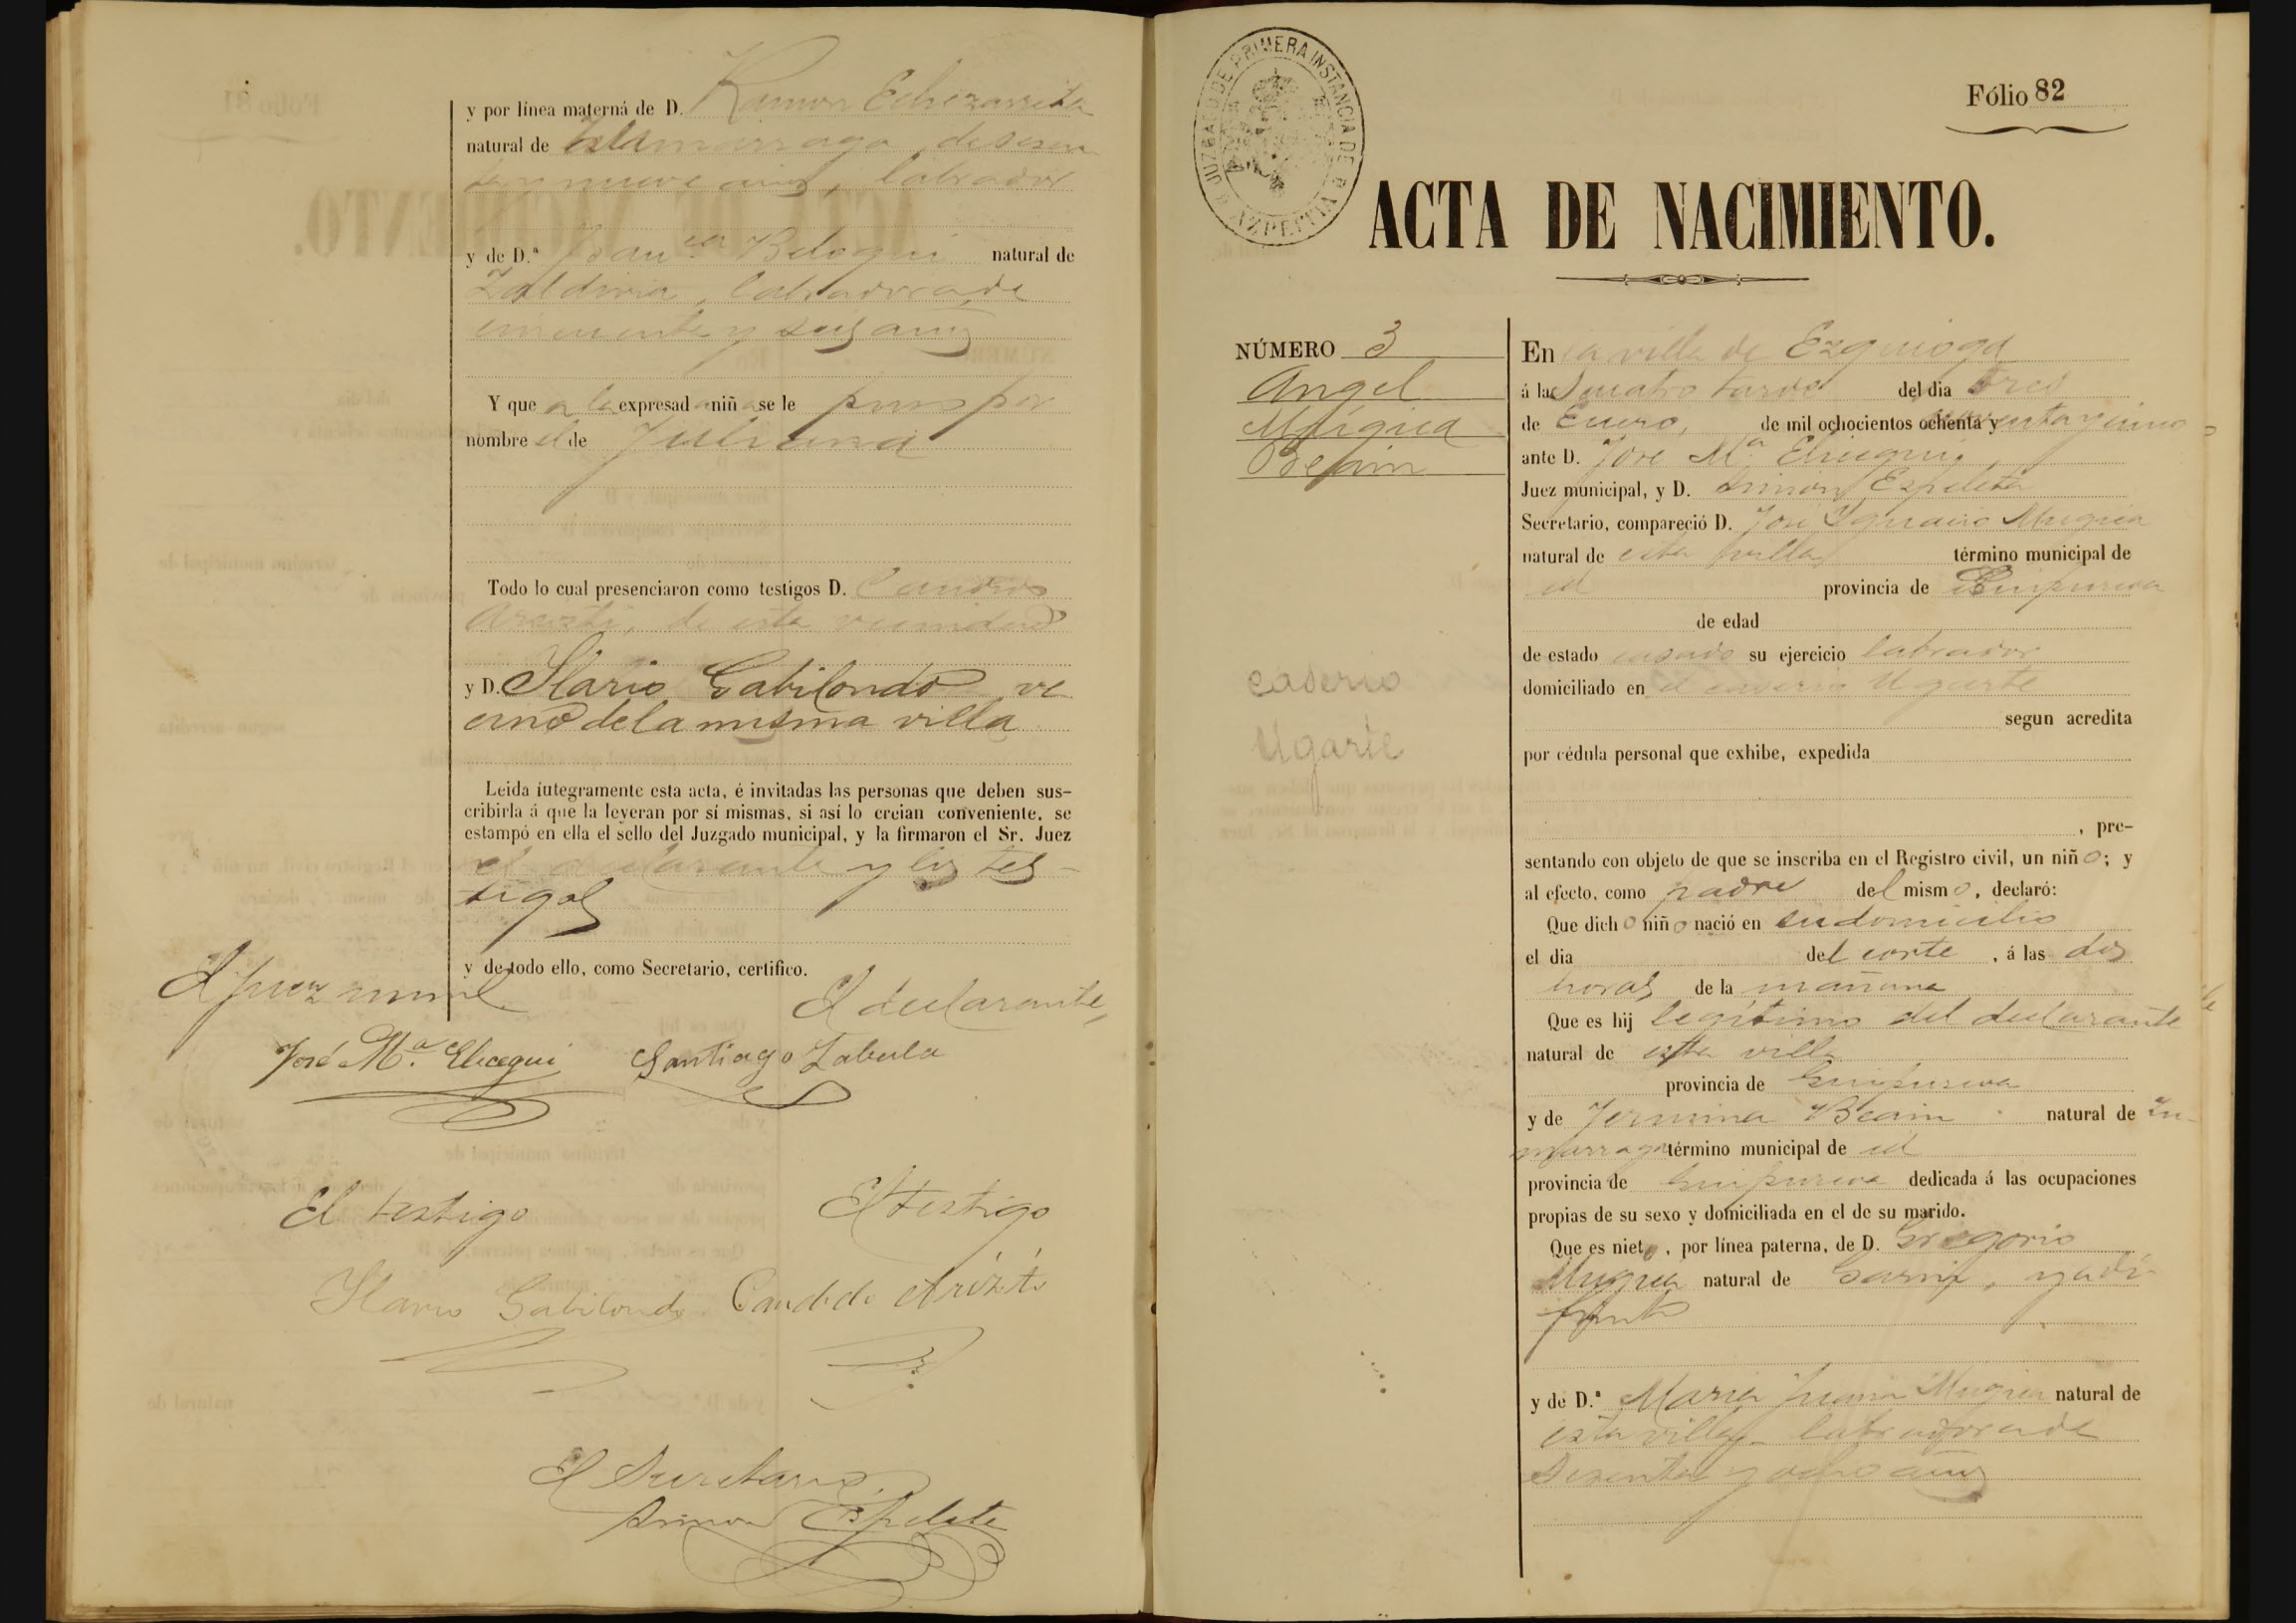 y por línea materna de D. Ramon Echezarreta
natural de Villamarraga, de sesen
ta y nueve años, labrador
y de D.ª Franca Beloqui natural de
Zaldivia, labradora de
cincuenta y seis años
Y que a la expresada niña se le puso por
nombre el de Juliana
Todo lo cual presenciaron como testigos D. Candido
Arizti, de esta vecindad
y D. Ilario Gabilondo ve
cino de la misma villa
Leida íntegramente esta acta, é invitadas las personas que deben sus-
cribirla á que la leyeran por sí mismas, si así lo creian conveniente, se
estampó en ella el sello del Juzgado municipal, y la firmaron el Sr. Juez
el declarante y los tes-
tigos
y de todo ello, como Secretario, certifico.
El Juez munl El declarante,
José Mª. Elicegui Santiago Zabala
El testigo El testigo
Ilario Gabilondo Candido Arizti
El Secretario,
Simon Ezpeleta
JUZGADO DE PRIMERA INSTANCIA DE AZPEITIA
Fólio 82
ACTA DE NACIMIENTO.
NÚMERO 3
Angel
Múgica
Beain
caserio
Ugarte
En la villa de Ezquioga
á las cuatro tarde del dia tres
de Enero, de mil ochocientos ochenta y noventa y cinco
ante D. José Mª Elicegui
Juez municipal, y D. Simon Ezpeleta
Secretario, compareció D. José Ygnacio Mugica
natural de esta villa, término municipal de
id provincia de Guipuzcoa
de edad
de estado casado su ejercicio labrador
domiciliado en el caserio Ugarte
segun acredita
por cédula personal que exhibe, expedida
, pre-
sentando con objeto de que se inscriba en el Registro civil, un niño; y
al efecto, como padre del mismo, declaró:
Que dicho niño nació en su domicilio
el dia del corte, á las dos
horas de la mañana
Que es hij legítimo del declarante
natural de esta villa
provincia de Guipuzcoa
y de Jermina Beain natural de Zu-
marraga término municipal de id
provincia de Guipuzcoa dedicada á las ocupaciones
propias de su sexo y domiciliada en el de su marido.
Que es nieto, por línea paterna, de D. Gregorio
Mugica natural de Gaviria, ya di-
funto
y de D.ª Maria Juana Mugica natural de
esta villa, labradora de
sesenta y ocho años